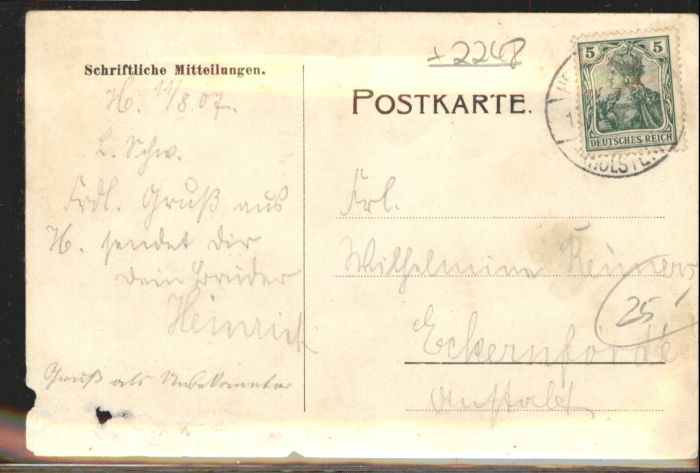 Schriftliche Mitteilungen.
H. 11/8.07.
L. Schw.
Frdl. Gruß aus
H. sendet dir
dein Bruder
Heinrich
Gruß als Unbekannter
+2248
POSTKARTE.
5 5
DEUTSCHES REICH
HOLSTEIN
Frl.
Wilhelmine Reimers
25
Eckernförde
Anstalt